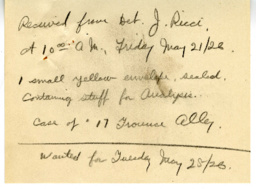 Received from Det. J. Ricci,
at 10 00 A.M., Friday May 21/26.
1 small yellow envelope, sealed.
Containing stuff for Analysis.
Case of # 17 Trounce Alley.
Wanted for Tuesday May 25/26.